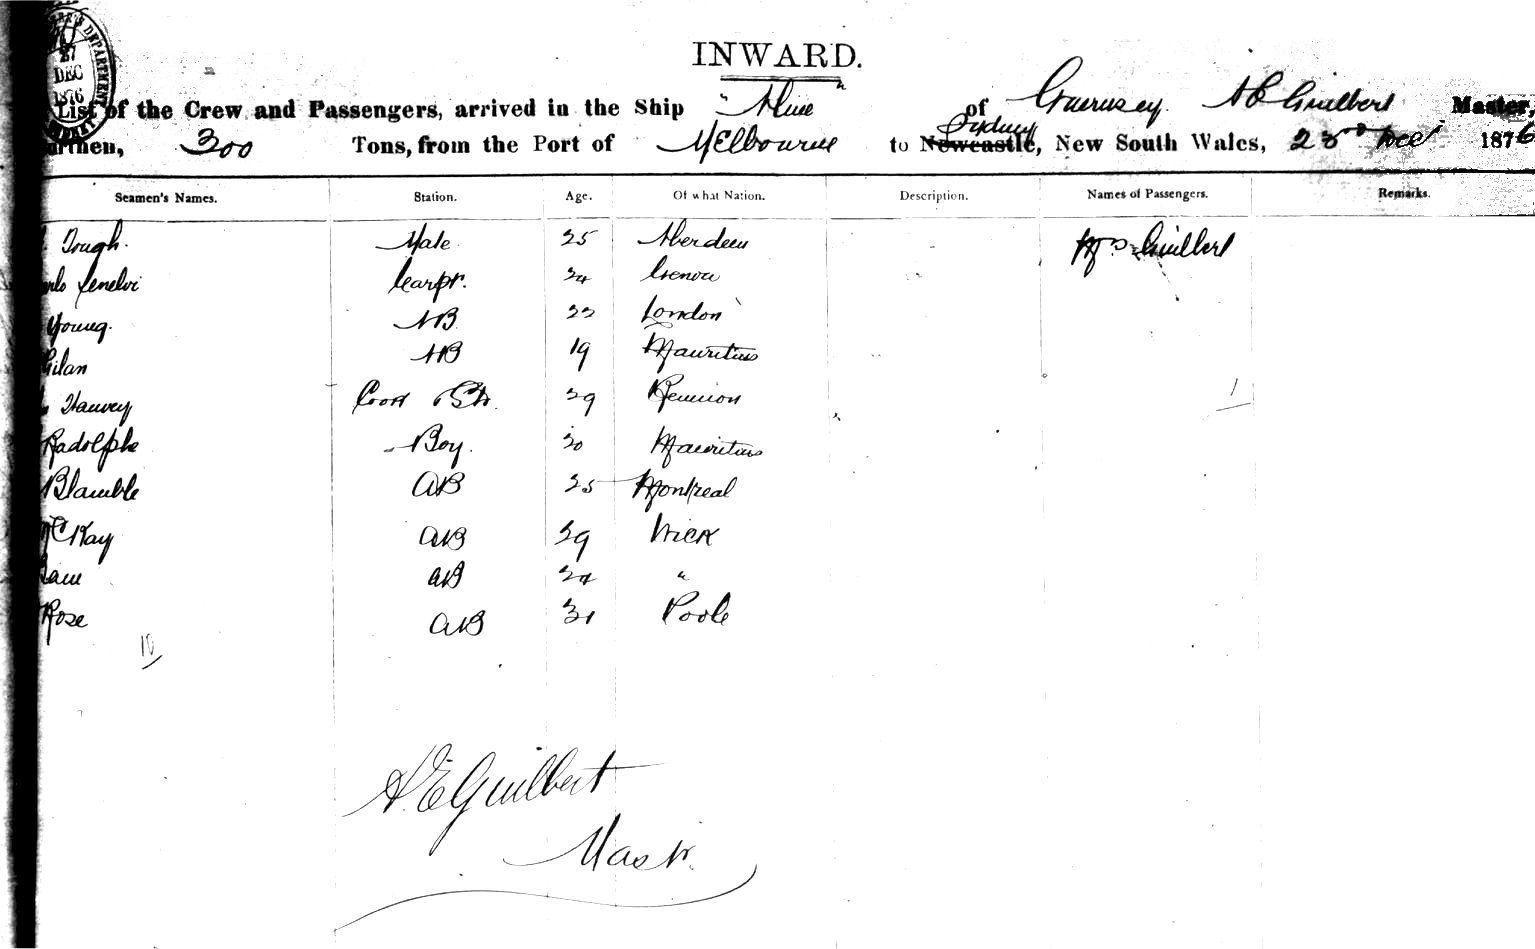 INWARD.
List of the Crew and Passengers, arrived in the Ship "Aline" of Guernsey A E Guilbert Master,
urthen, 300 Tons, from the Port of Melbourne to Newcastle, Sydney New South Wales, 23rd Dec 1876
27
DEC
1876
Seamen's Names. Station. Age. Of what Nation. Description. Names of Passengers. Remarks.
Tough. Mate 25 Aberdeen Mrs Guilbert
Carpr. 24 Genoa
Young. AB 22 London
Gilan AB 19 Mauritius
Harvey Cook & Std. 29 Reunion 1
Radolphe Boy. 20 Mauritius
Blamble AB 25 Montreal
McKay AB 29 Wick
AB 24 "
Rose AB 31 Poole
10
A.E Guilbert
Mastr.